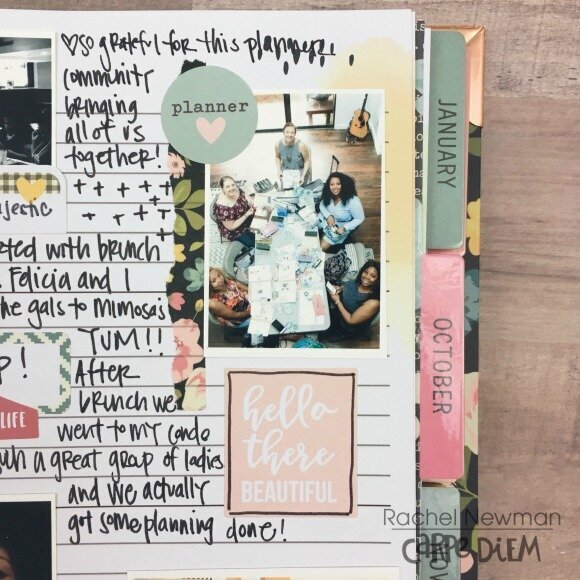 ♡so grateful for this planner
community
bringing
all of us
together!
planner
ajestic
rted with brunch
. Felicia and I
he gals to Mimosas
YUM!!
P!
After
brunch we
LIFE
went to my condo
uch a great group of ladies
and we actually
got some planning done!
hello
there
BEAUTIFUL
JANUARY
OCTOBER
NOV
Rachel Newman
CARPE DIEM